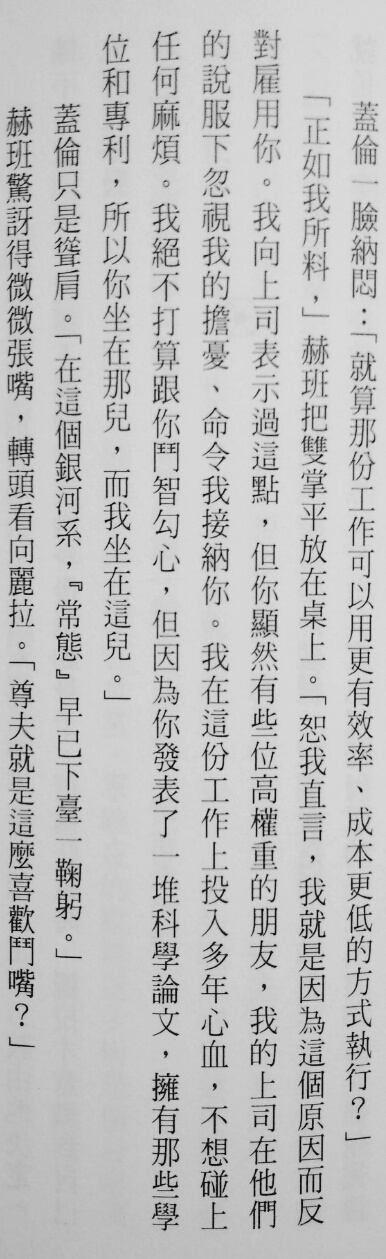 蓋倫一臉納悶：「就算那份工作可以用更有效率、成本更低的方式執行？」
「正如我所料，」赫班把雙掌平放在桌上。「恕我直言，我就是因為這個原因而反
對雇用你。我向上司表示過這點，但你顯然有些位高權重的朋友，我的上司在他們
的說服下忽視我的擔憂、命令我接納你。我在這份工作上投入多年心血，不想碰上
任何麻煩。我絕不打算跟你鬥智勾心，但因為你發表了一堆科學論文，擁有那些學
位和專利，所以你坐在那兒，而我坐在這兒。」
蓋倫只是聳肩。「在這個銀河系，『常態』早已下臺一鞠躬。」
赫班驚訝得微微張嘴，轉頭看向麗拉。「尊夫就是這麼喜歡鬥嘴？」